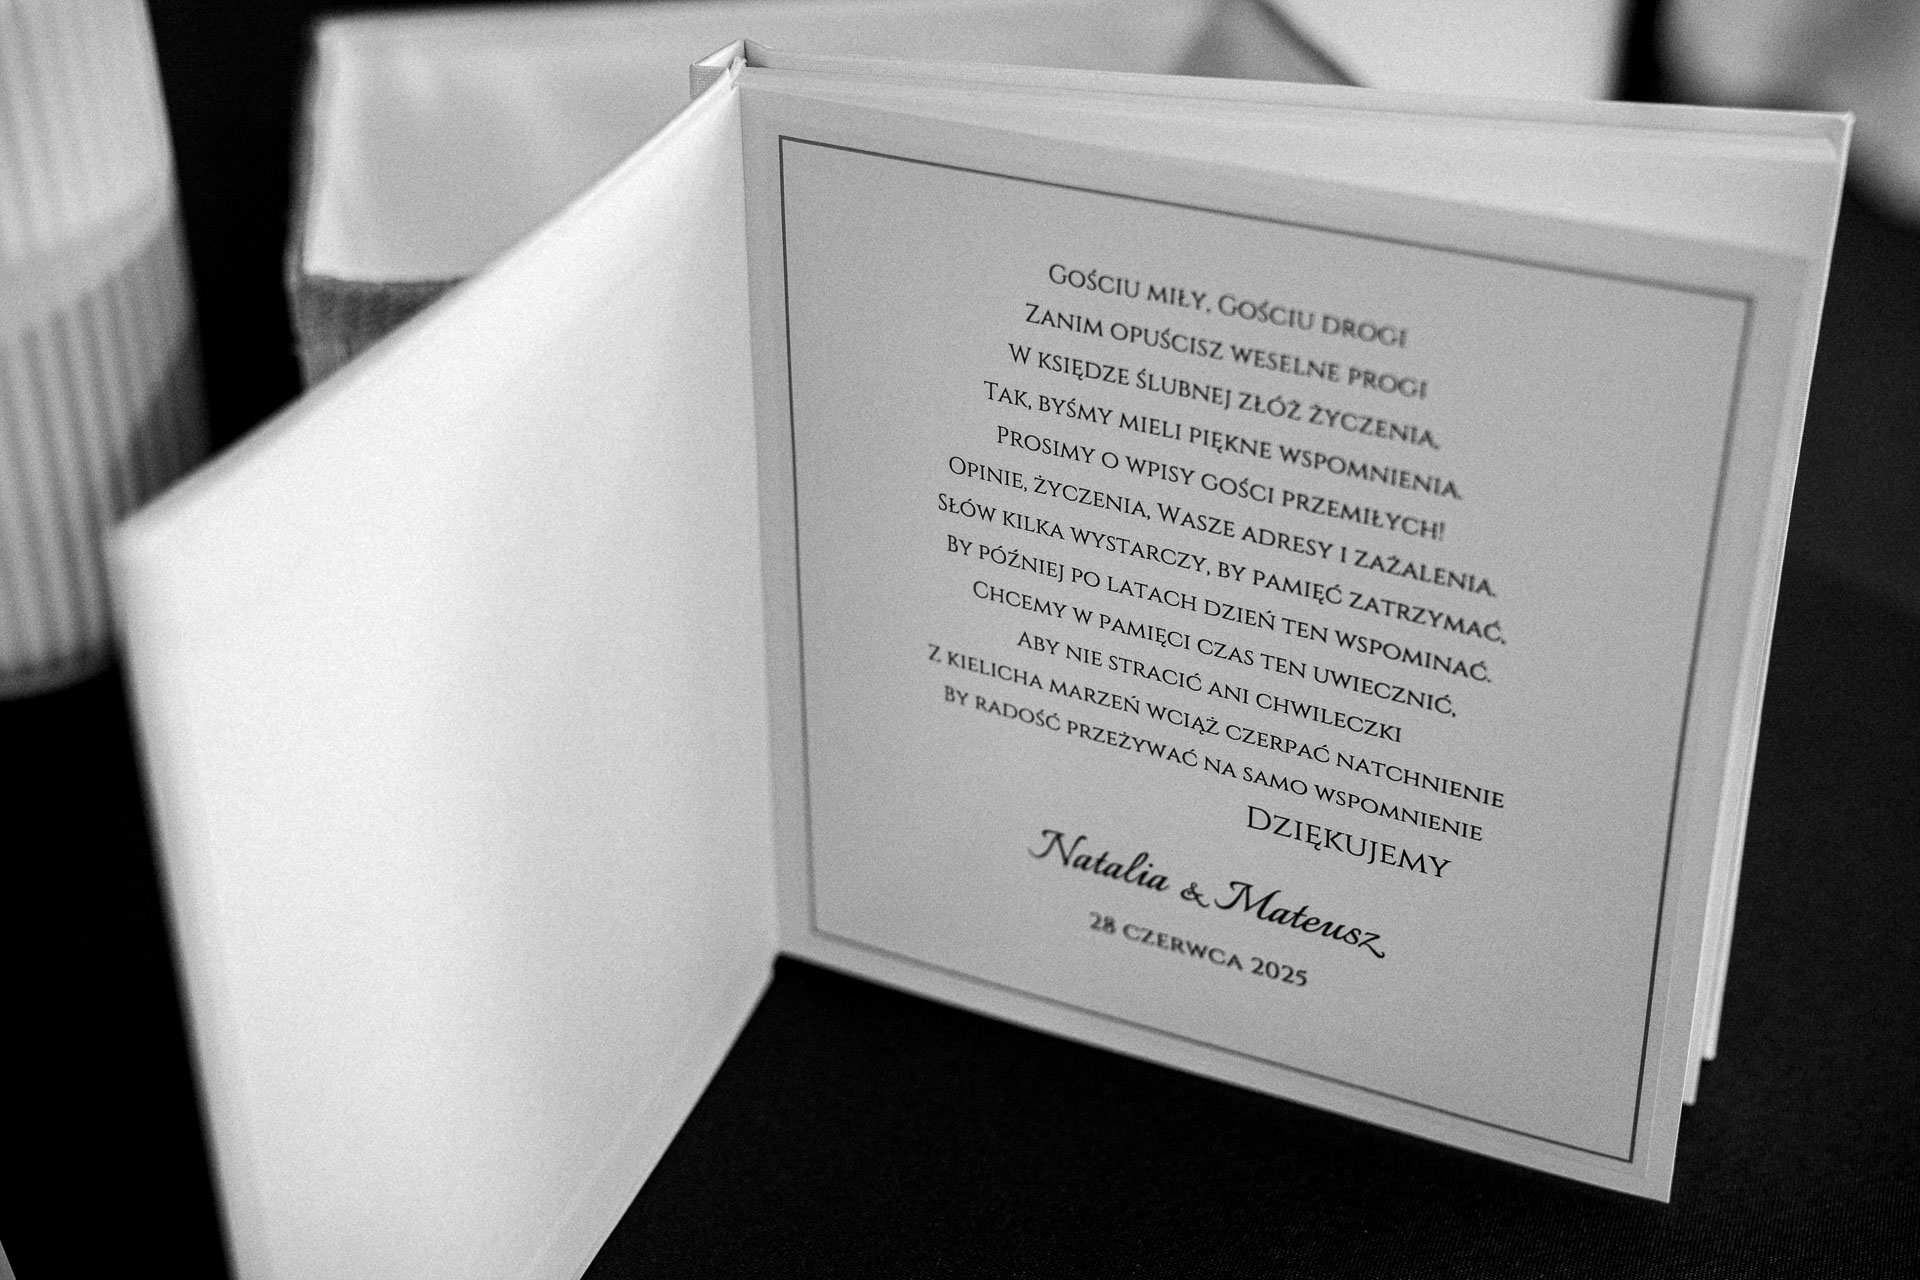 Gościu miły, Gościu drogi
Zanim opuścisz weselne progi
W księdze ślubnej złóż życzenia.
Tak, byśmy mieli piękne wspomnienia.
Prosimy o wpisy gości przemiłych!
Opinie, życzenia, Wasze adresy i zażalenia.
Słów kilka wystarczy, by pamięć zatrzymać.
By później po latach dzień ten wspominać.
Chcemy w pamięci czas ten uwiecznić,
aby nie stracić ani chwileczki
Z kielicha marzeń wciąż czerpać natchnienie
By radość przeżywać na samo wspomnienie
Dziękujemy
Natalia & Mateusz
28 czerwca 2025